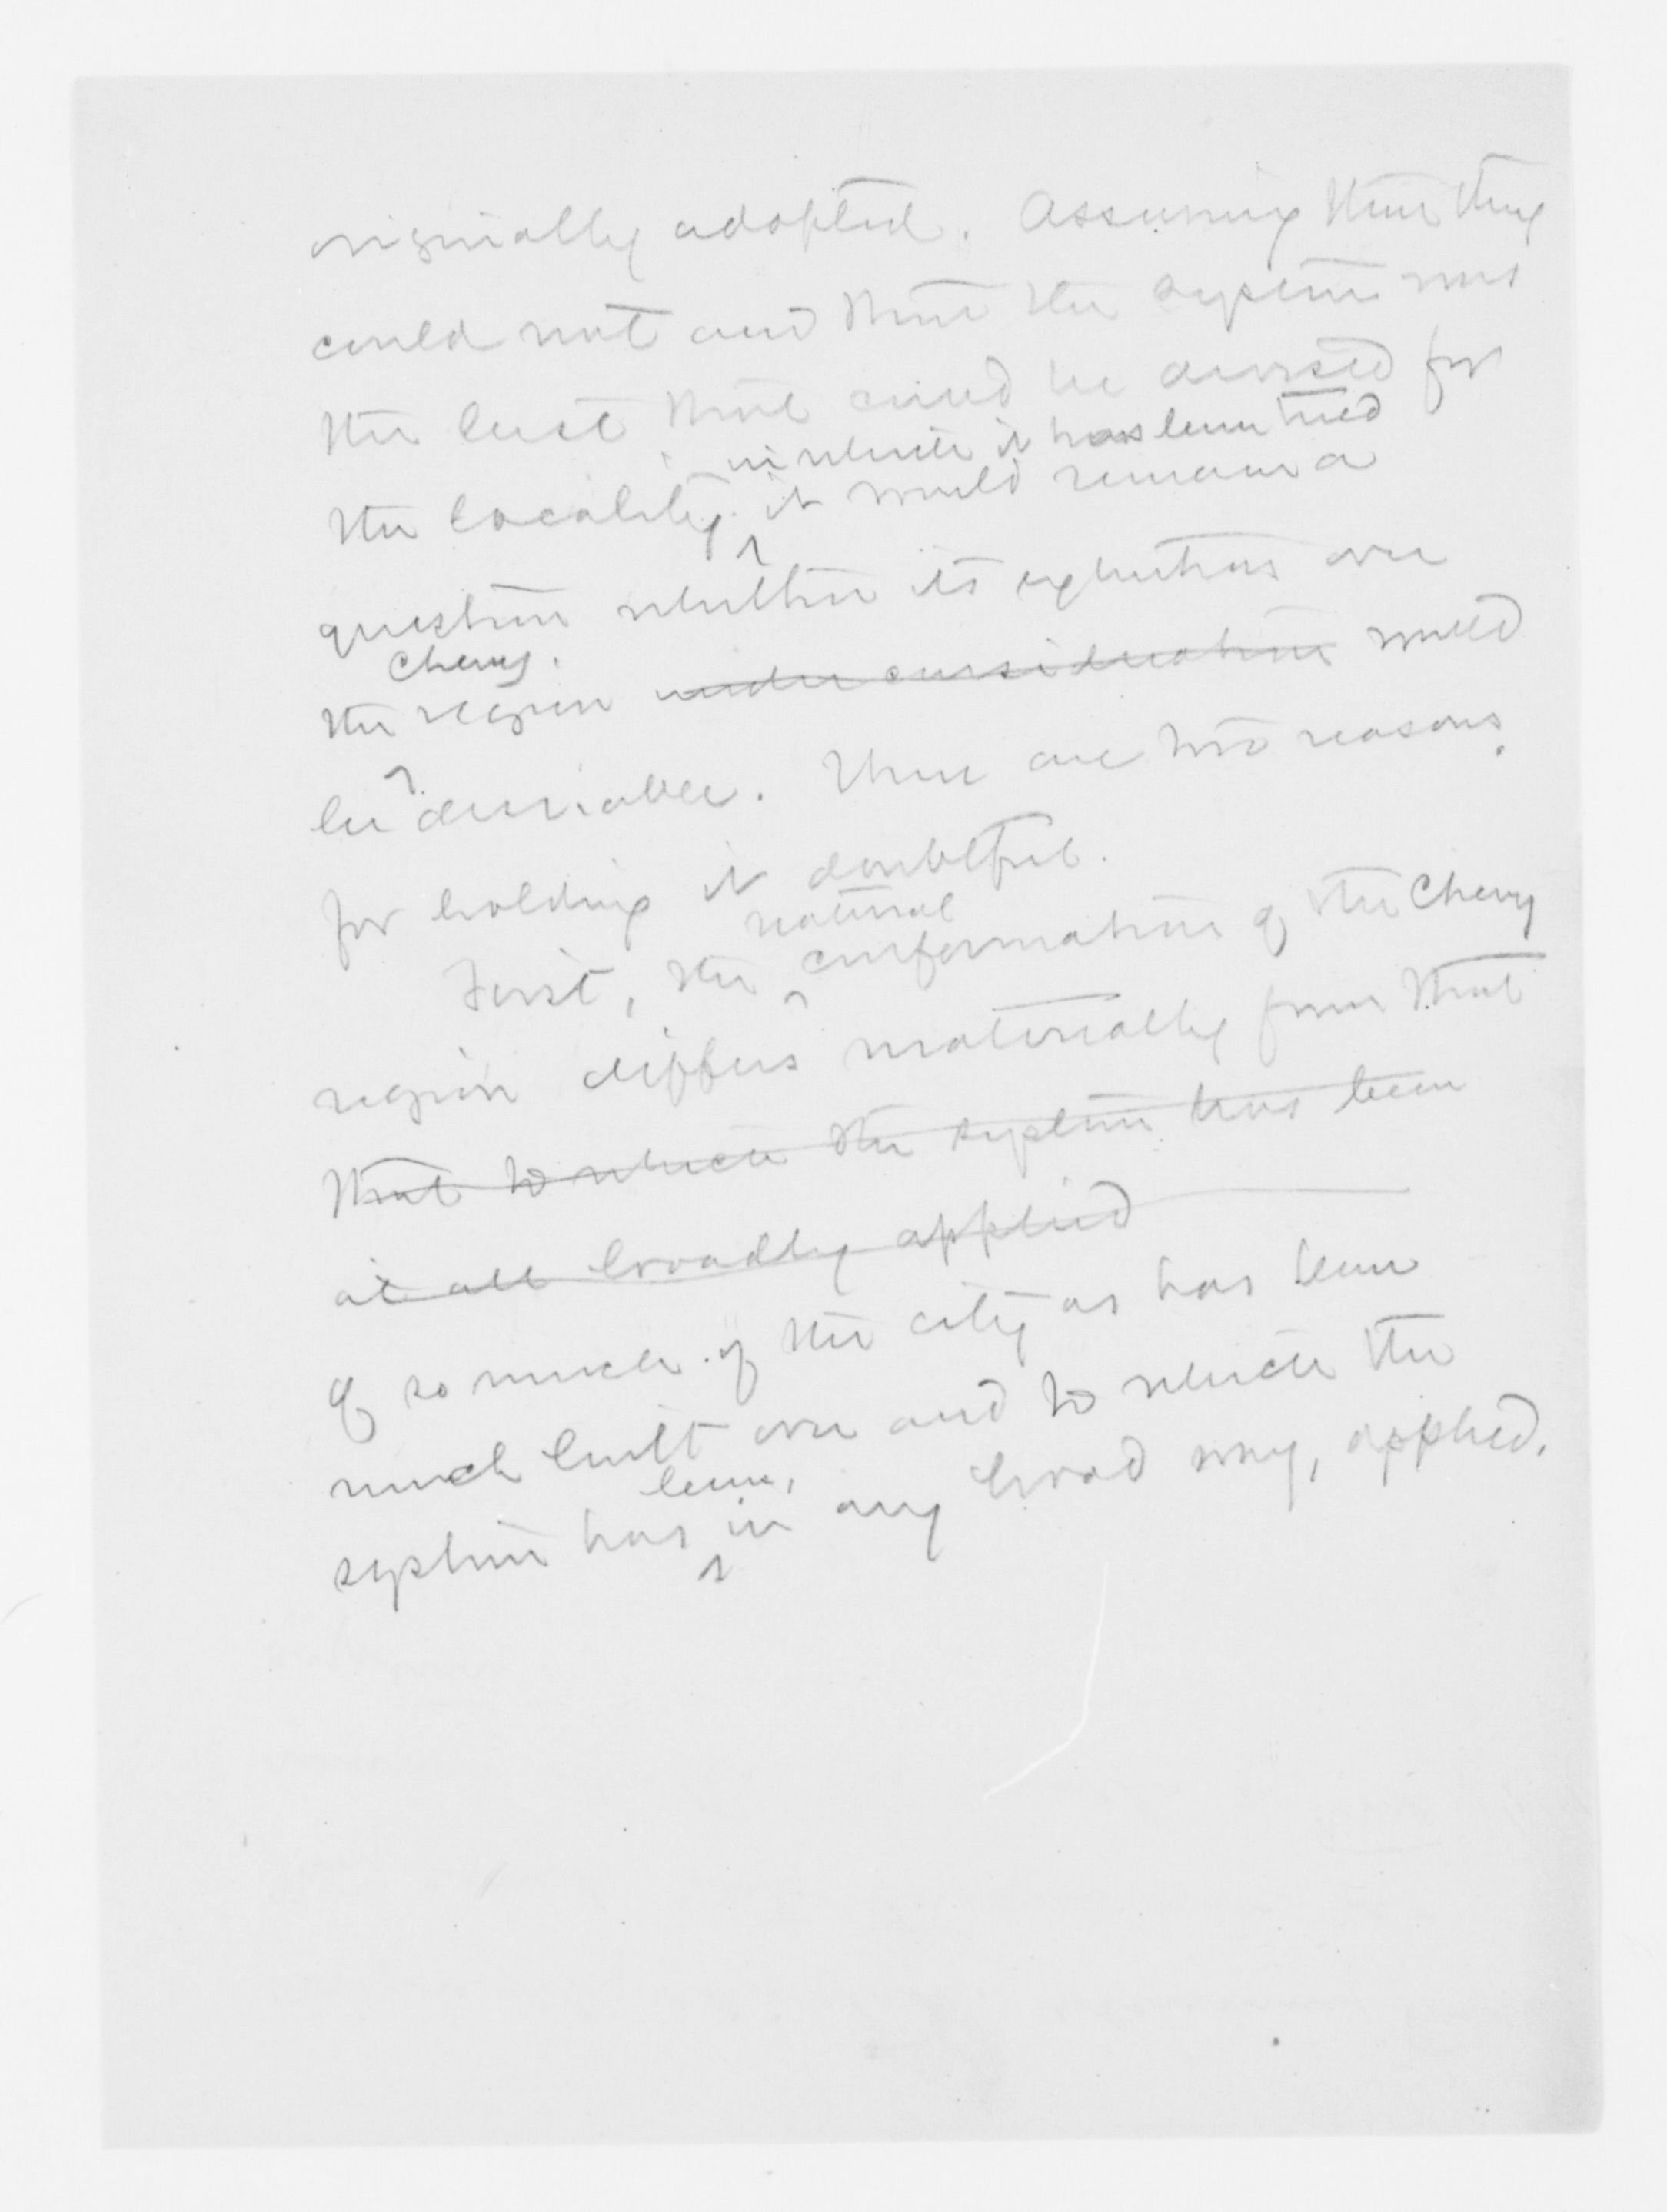 originally adopted. Assuming that they
could not and that the system was
the best that could be devised for
in which it has been tried
the locality it would remain a
question whether its extension over
Chevy
the region under consideration would
be desirable. There are two reasons
for holding it doubtful.
natural
First, the conformation of the Chevy
region differs materially from that
that to which the system has been
at all broadly applied
of so much of the city as has been
much built over and to which the
been,
system has in any broad way, applied.